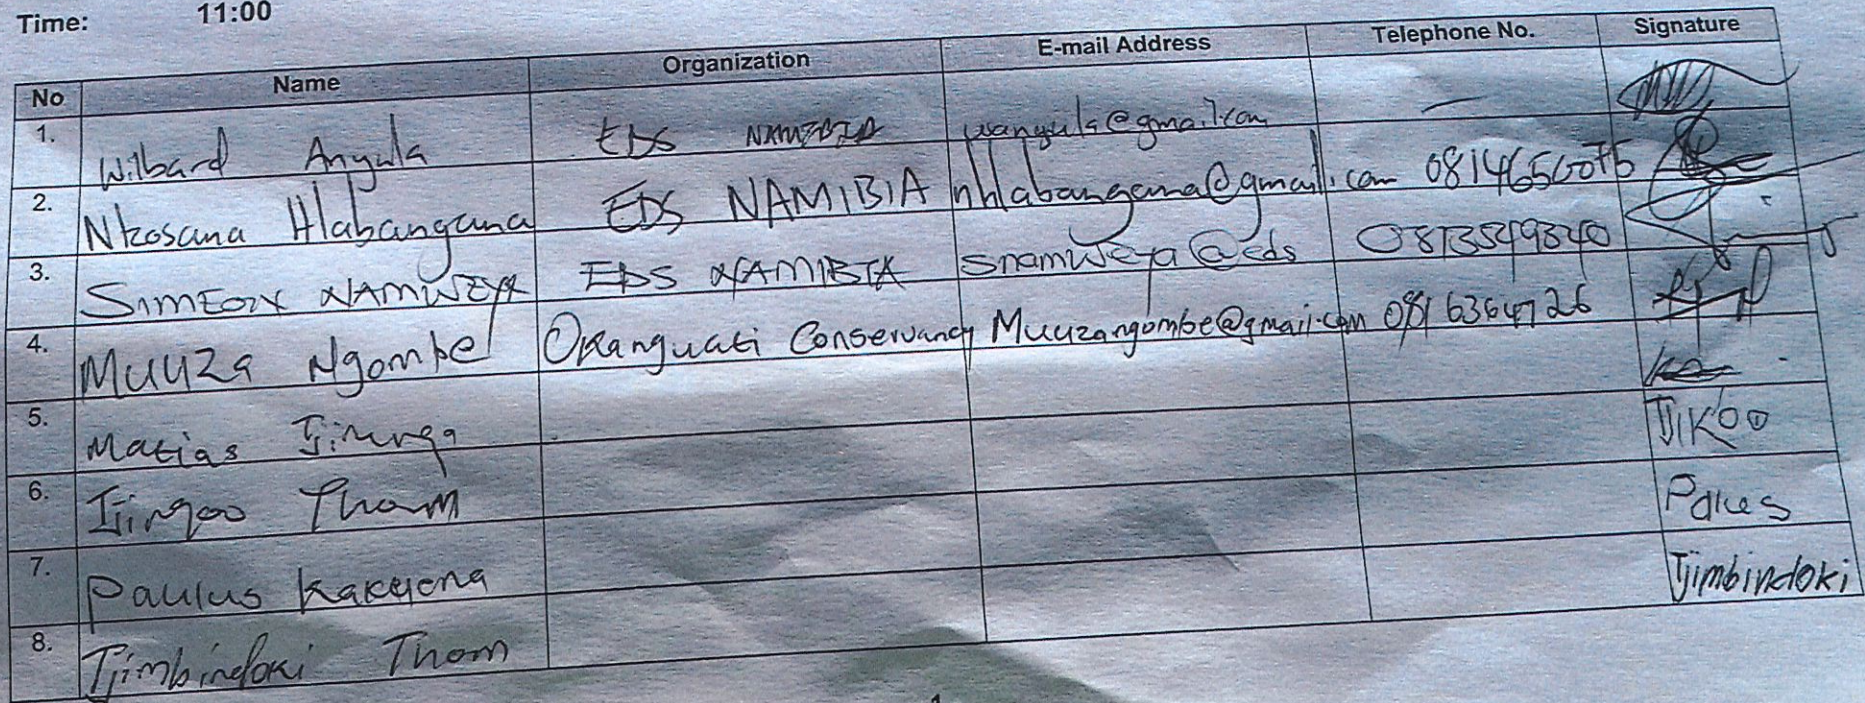 Time: 11:00
No Name Organization E-mail Address Telephone No. Signature
1. Wilbard Angula EDS NAMIBIA wangula@gmail.com —
2. Nkosana Hlabangana EDS NAMIBIA nhlabangana@gmail.com
3. SIMEON NAMWEYA EDS NAMIBIA snamweya@eds 0813549340
4. Muuza Ngombe Okanguati Conservancy Muuzangombe@gmail.com 081 6364726
5. Matias
6. Thom TJIKOO
7. Paulus Kakuona Pakes
8. Tjimbindoki Thom Tjimbindoki
1